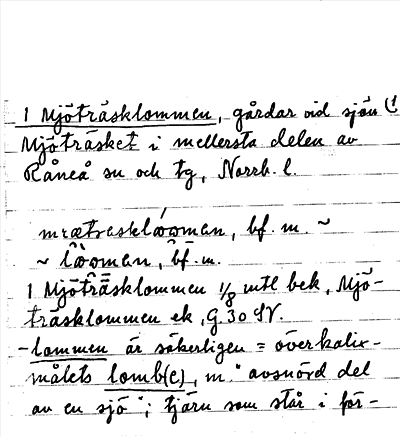 1 Mjöträsklommen, gårdar vid sjön (1
Mjöträsket i mellersta delen av
Råneå sn och tg, Norrb. l.
bf. m. ~
bf. m.
1 Mjöträsklommen 1/8 mtl bek, Mjö-
träsklommen ek, G. 30 SV.
-lommen är säkerligen = överkalix-
målets lomb(e), m. "avsnörd del
av en sjö"; tjärn som står i för-